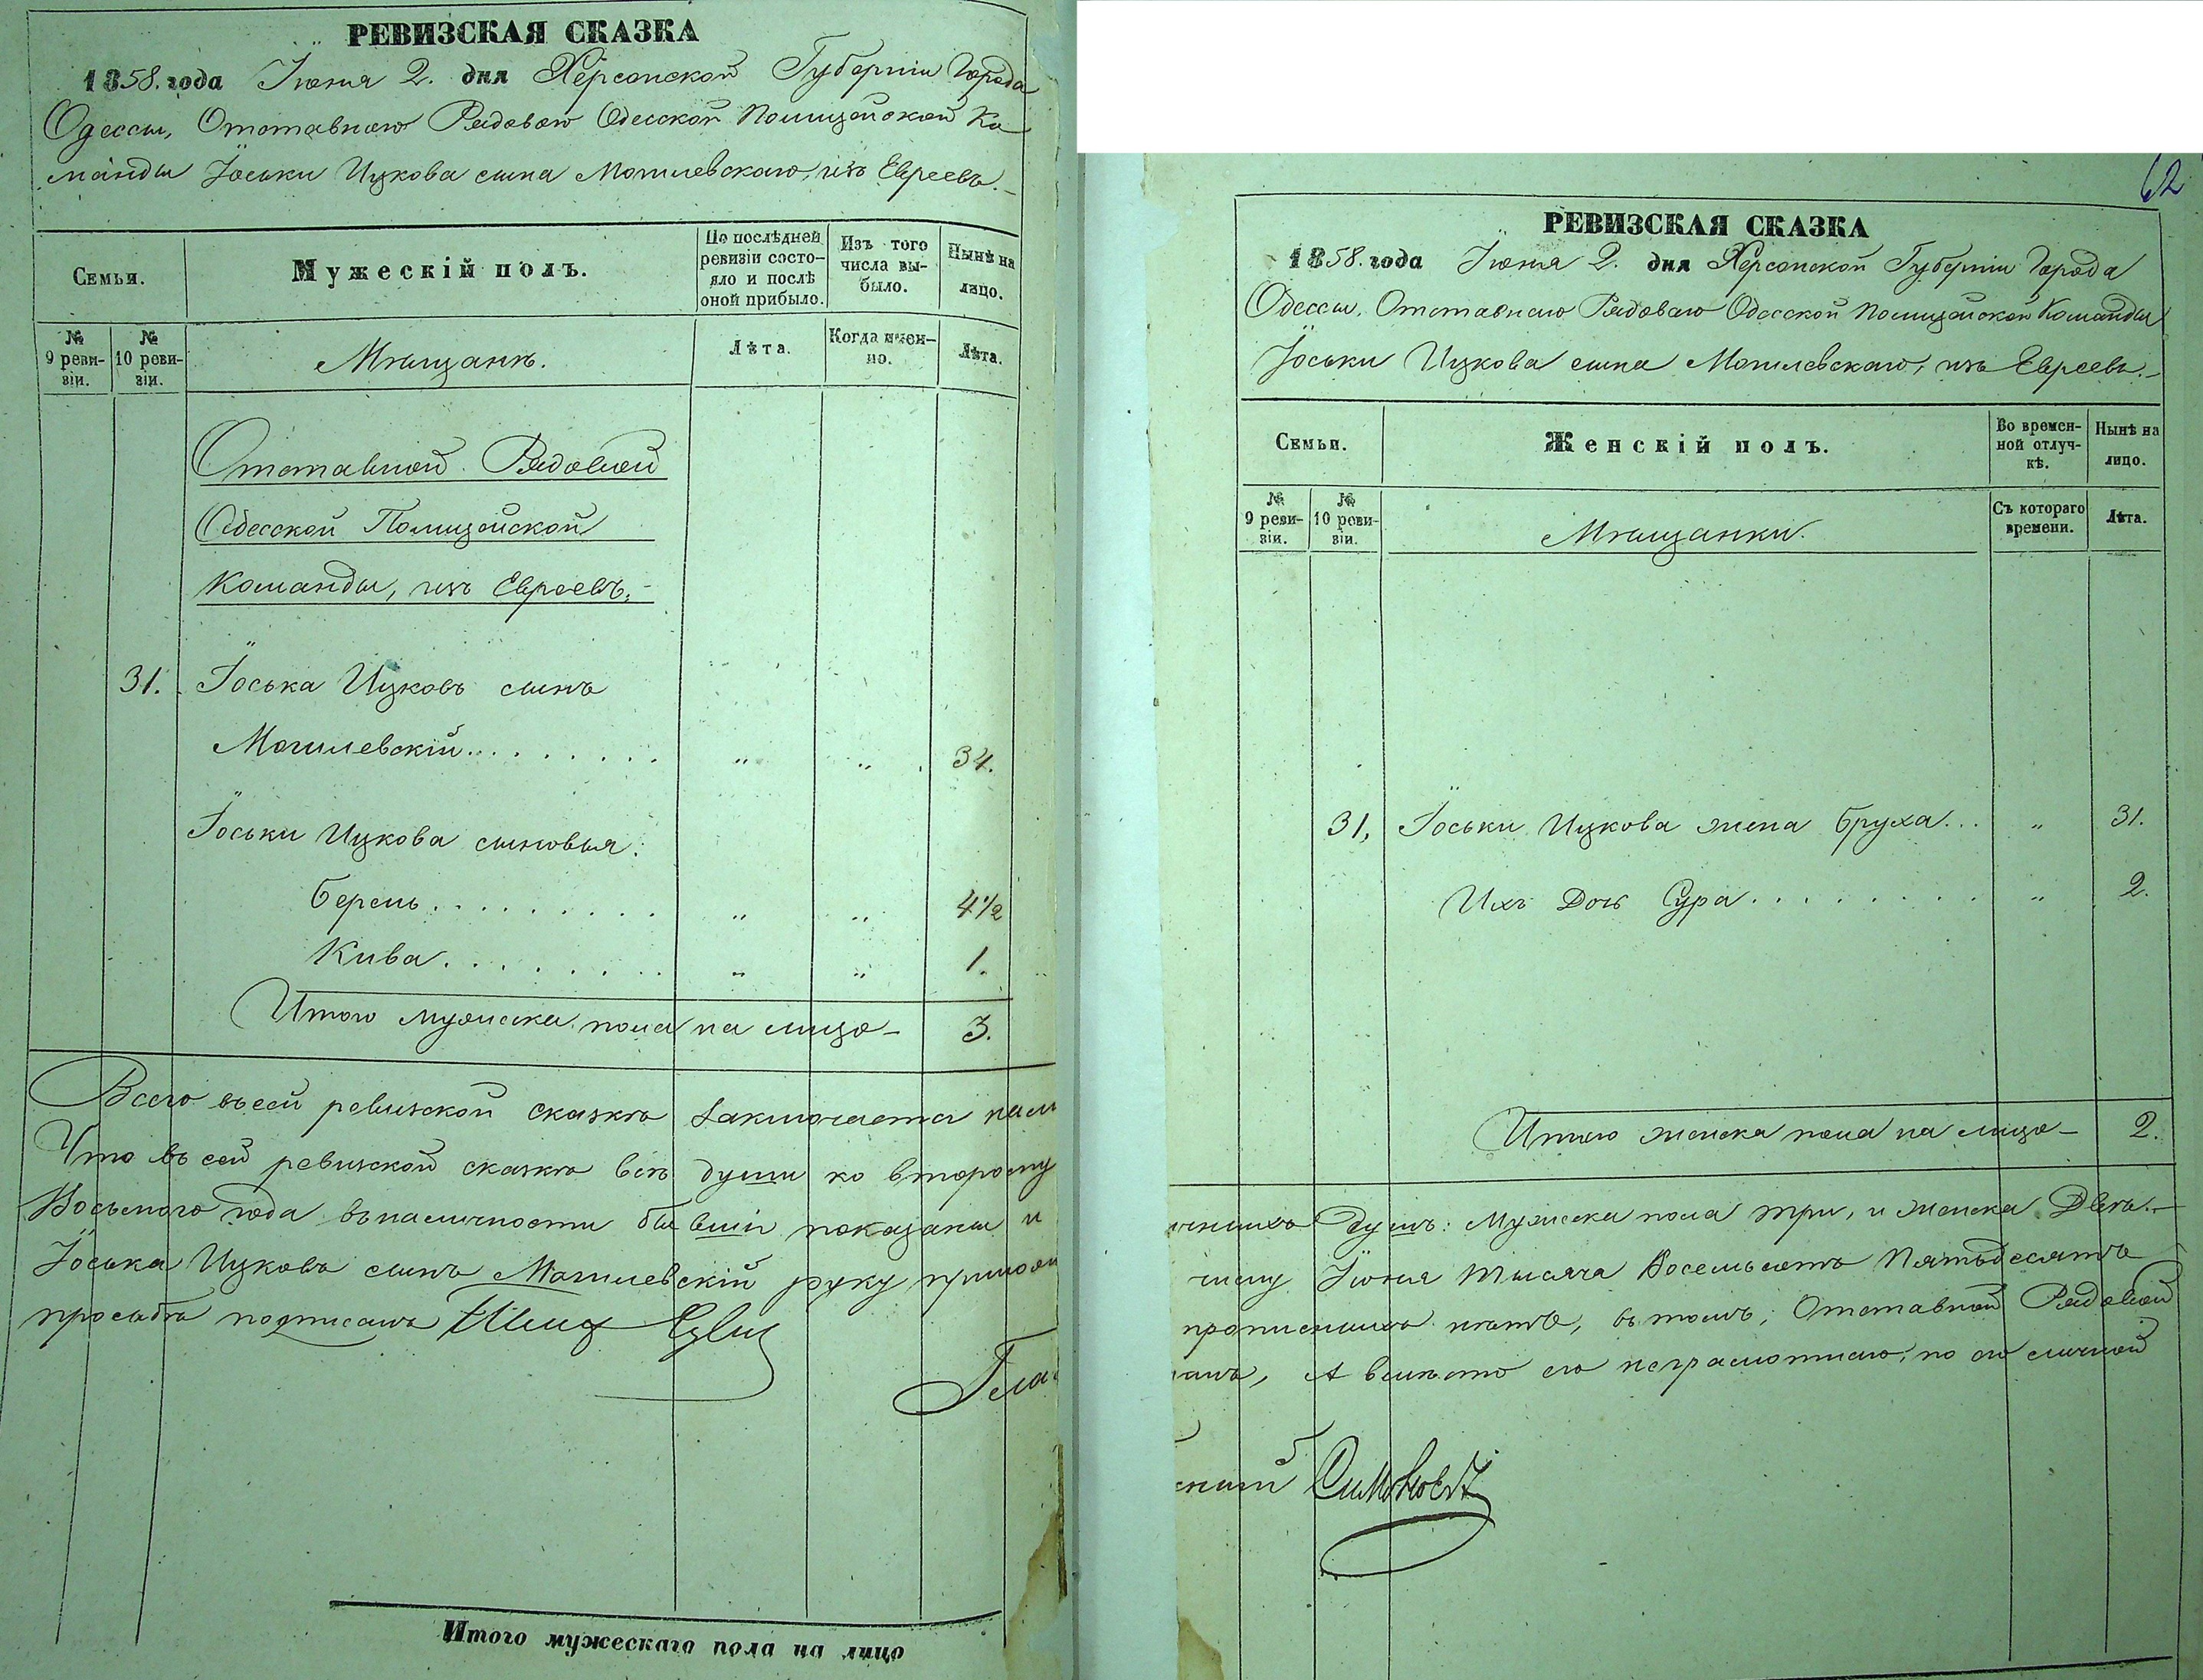 РЕВИЗСКАЯ СКАЗКА
1858. года Іюня 2. дня Херсонской Губерніи Города
Одессы, Отставнаго Рядоваго Одесской Полицейской Ко
манды Іоськи Ицкова сына Могилевскаго, изъ Евреевъ.
Семьи.
Мужескій полъ.
По послѣдней
ревизіи состо-
яло и послѣ
оной прибыло.
Изъ того
числа вы-
было.
Нынѣ на
лицо.
№
9 реви-
зіи.
№
10 реви-
зіи.
Мѣщанъ.
Лѣта.
Когда имен-
но.
Лѣта.
Отставной Рядовой
Одесской Полицейской
Команды, изъ Евреевъ.
31. Іоська Ицковъ сынъ
Могилевскій . . . . . . . . „ „ 34.
Іоськи Ицкова сыновья:
Берель . . . . . . . . „ „ 4½
Кива . . . . . . . . „ „ 1.
Итого мужеска пола на лицо 3.
Всего въ сей ревизской сказкѣ заключается
Что въ сей ревизской сказкѣ всѣ души ко второму
Восьмого года въ наличности бывшіе показаны и
Іоська Ицковъ сынъ Могилевскій руку прилож
просьбѣ подписалъ
Глас
Итого мужескаго пола на лицо
62
РЕВИЗСКАЯ СКАЗКА
1858. года Іюня 2. дня Херсонской Губерніи Города
Одессы, Отставнаго Рядоваго Одесской Полицейской Команды
Іоськи Ицкова сына Могилевскаго, изъ Евреевъ.
Семьи.
Женскій полъ.
Во времен-
ной отлуч-
кѣ.
Нынѣ на
лицо.
№
9 реви-
зіи.
№
10 реви-
зіи.
Мѣщанки.
Съ котораго
времени.
Лѣта.
31, Іоськи Ицкова жена Бруха . . . „ 31.
Ихъ Дочь Сура . . . . . . . . „ 2.
Итого женска пола на лицо 2.
душъ: Мужеска пола три, и женска Двѣ.
числу Іюня Тысяча Восемьсотъ Пятьдесятъ
прописныхъ нѣтъ, въ томъ, Отставной Рядовой
А вмѣсто его неграмотнаго, по его личной